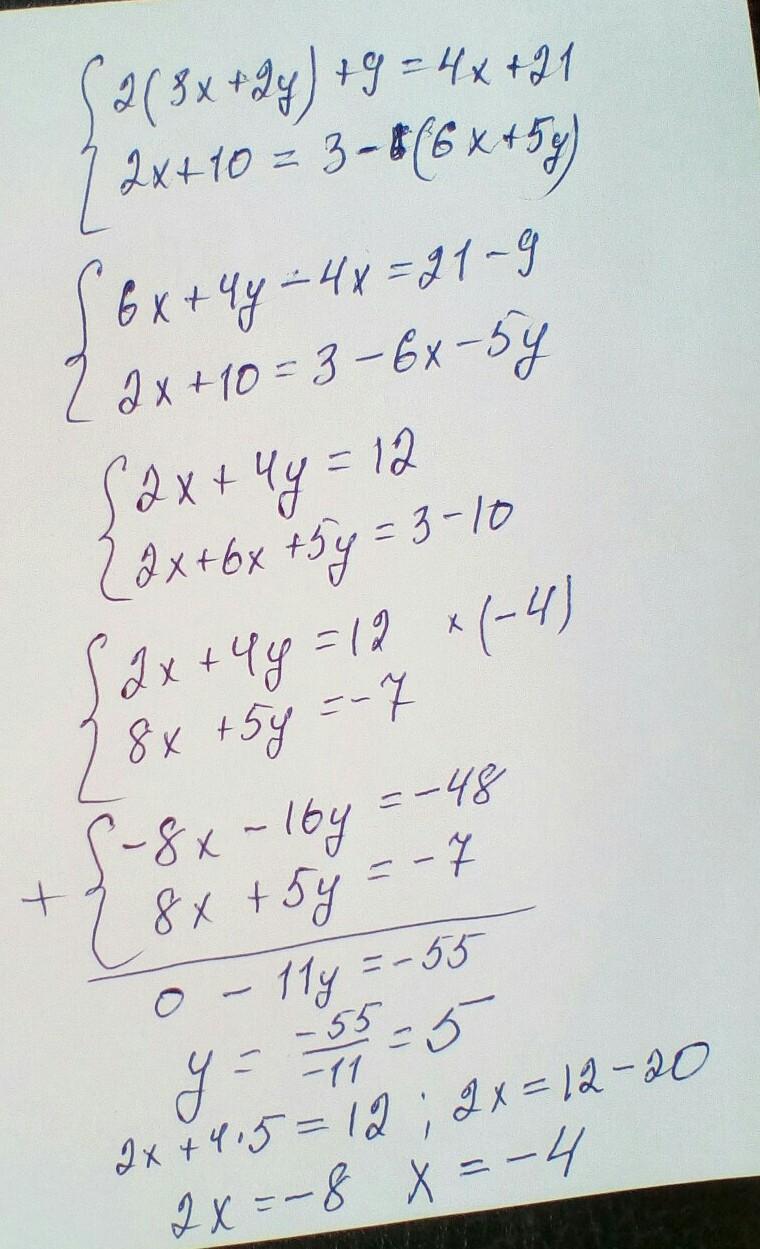 2(3x+2y)+9=4x+21
2x+10=3-(6x+5y)
6x+4y-4x=21-9
2x+10=3-6x-5y
2x+4y=12
2x+6x+5y=3-10
2x+4y=12 ×(-4)
8x+5y=-7
-8x-16y=-48
+ 8x+5y=-7
0-11y=-55
y=-55/-11=5
2x+4·5=12; 2x=12-20
2x=-8 x=-4